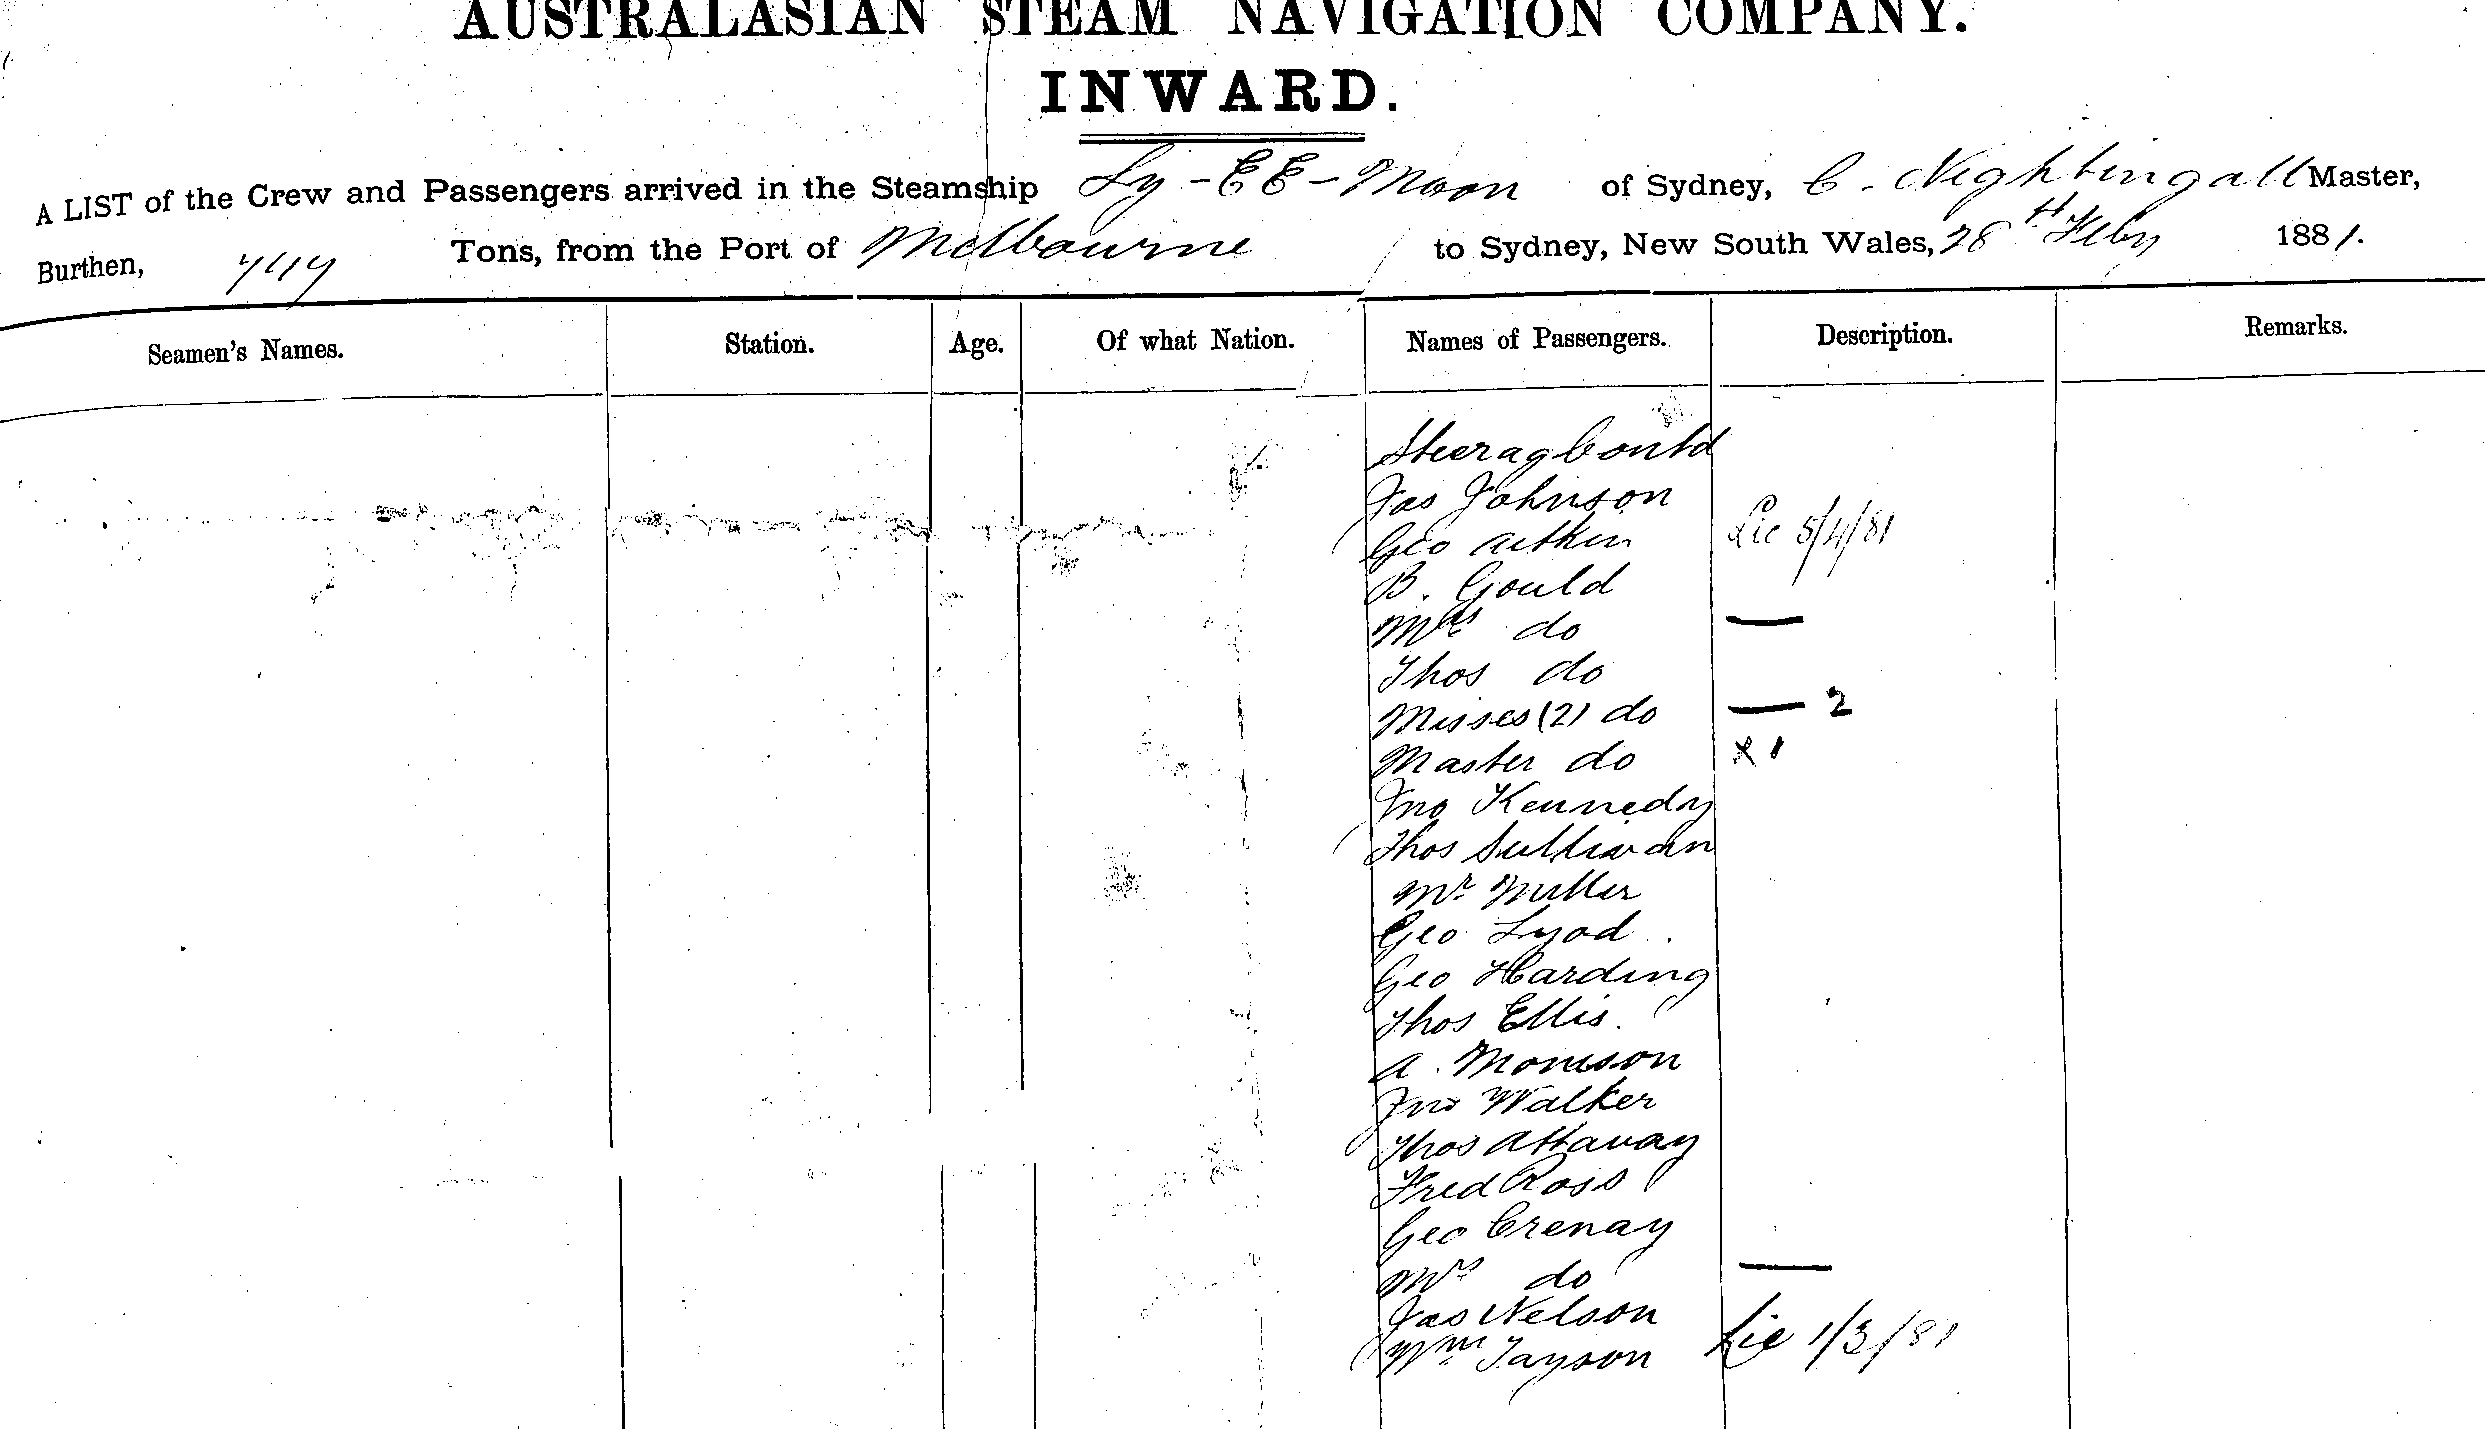 AUSTRALASIAN STEAM NAVIGATION COMPANY.
INWARD.
A LIST of the Crew and Passengers arrived in the Steamship Ly-EE-Moon of Sydney, C. Nightingall Master,
Burthen, Tons, from the Port of Melbourne to Sydney, New South Wales, 28th Feby 1881.
Seamen's Names. Station. Age. Of what Nation. Names of Passengers. Description. Remarks.
Steerag Contd
Jas Johnson
Geo Aitkin Lic 5/4/81
B. Gould
Mrs do —
Thos do
Misses (2) do — 2
Master do x 1
Jno Kennedy
Thos Sullivan
Mr Miller
Geo Lyod
Geo Harding
Thos Ellis.
A. Morrison
Jno Walker
Thos Attaway
Fred Ross
Geo Crenay
Mrs do —
Jas Nelson
Wm Jayson Lic 1/3/81